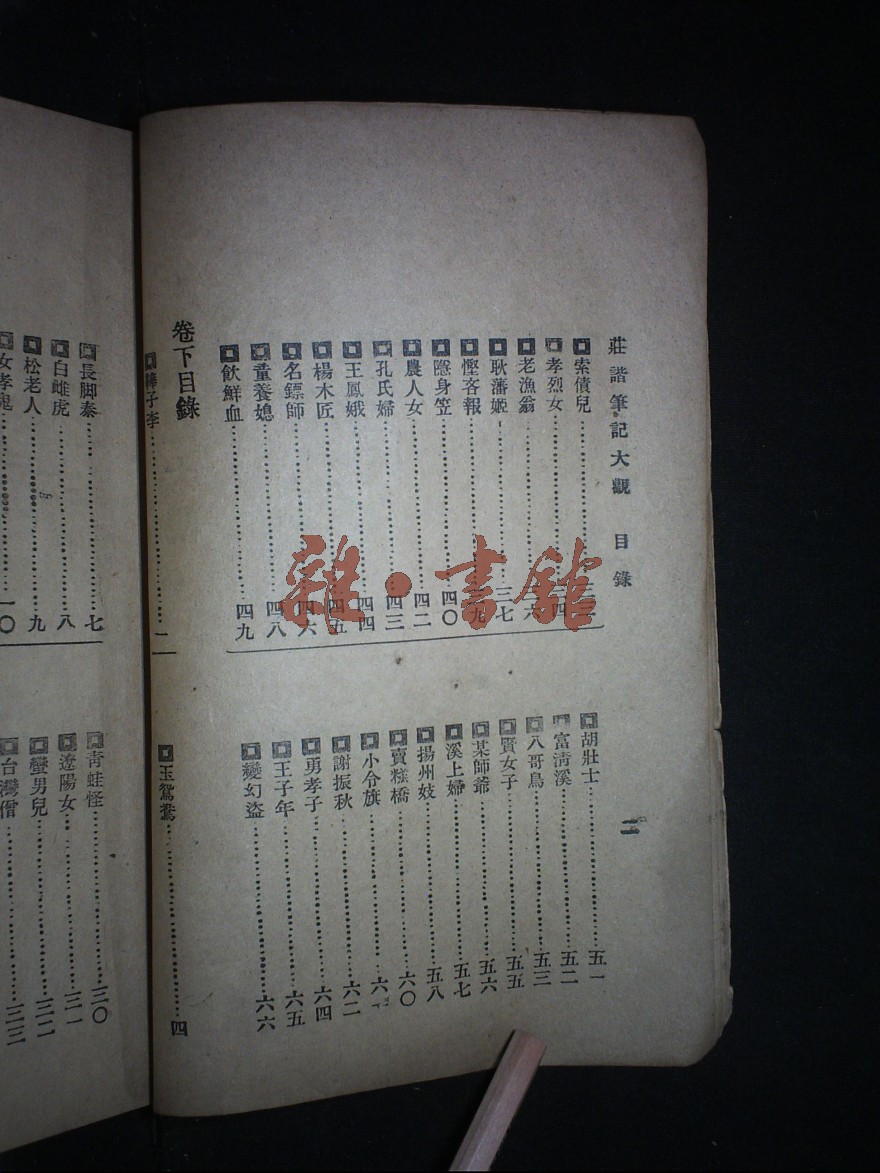 莊諧筆記大觀 目錄
二
索債兒
孝烈女
老漁翁
耿藩姬 三七
慳客報
隱身笠 四〇
農人女 四二
孔氏婦 四三
王鳳娥 四四
楊木匠 四五
名鏢師 四六
童養媳 四八
飲鮮血 四九
胡壯士 五一
富淸溪 五二
八哥鳥 五三
賢女子 五五
某師爺 五六
溪上婦 五七
揚州妓 五八
賣糕橋 六〇
小令旗 六一
謝振秋 六二
勇孝子 六四
王子年 六五
變幻盜 六六
卷下目錄
棒子李
玉鴛鴦 四
長脚秦 七
白雌虎 八
松老人 九
女孝鬼 一〇
靑蛙怪 三〇
遼陽女 三一
蠻男兒 三二
台灣僧 三三
雜·書館